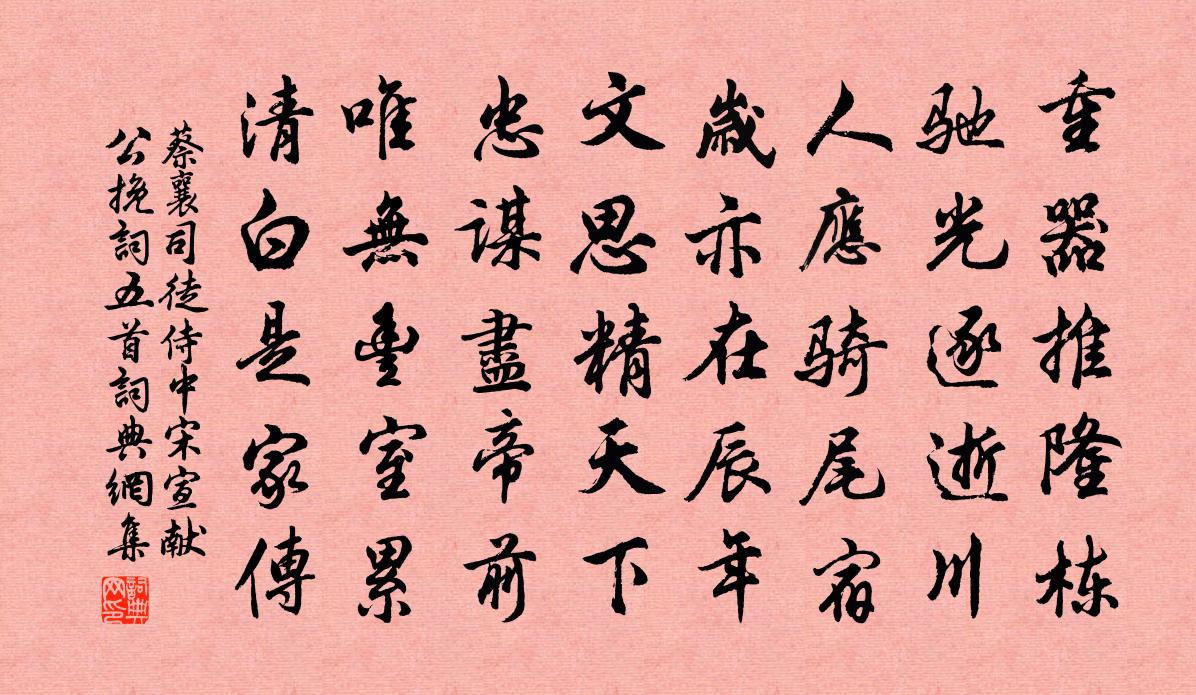 重器推隆栋
驰光逐逝川
人應骑尾宿
歲亦在辰年
文思精天下
忠谋盡帝前
唯無豐室累
清白是家傳
蔡襄司徒侍中宋宣献
公挽詞五首詞典網集
詞典
网印